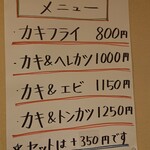 メニュー
・カキフライ 800円
・カキ&ヘレカツ1000円
・カキ&エビ 1150円
・カキ&トンカツ1250円
※セットは+350円です